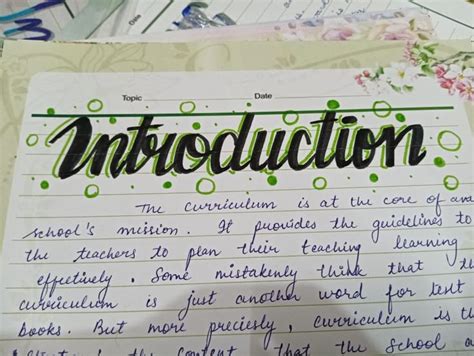 Topic Date
Introduction
The curriculum is at the core of
school's mission. It provides the guidelines to
the teachers to plan their teaching learning
effectively. Some mistakenly think that
curriculum is just another word for text
books. But more preciesly, curriculum is
content that the school